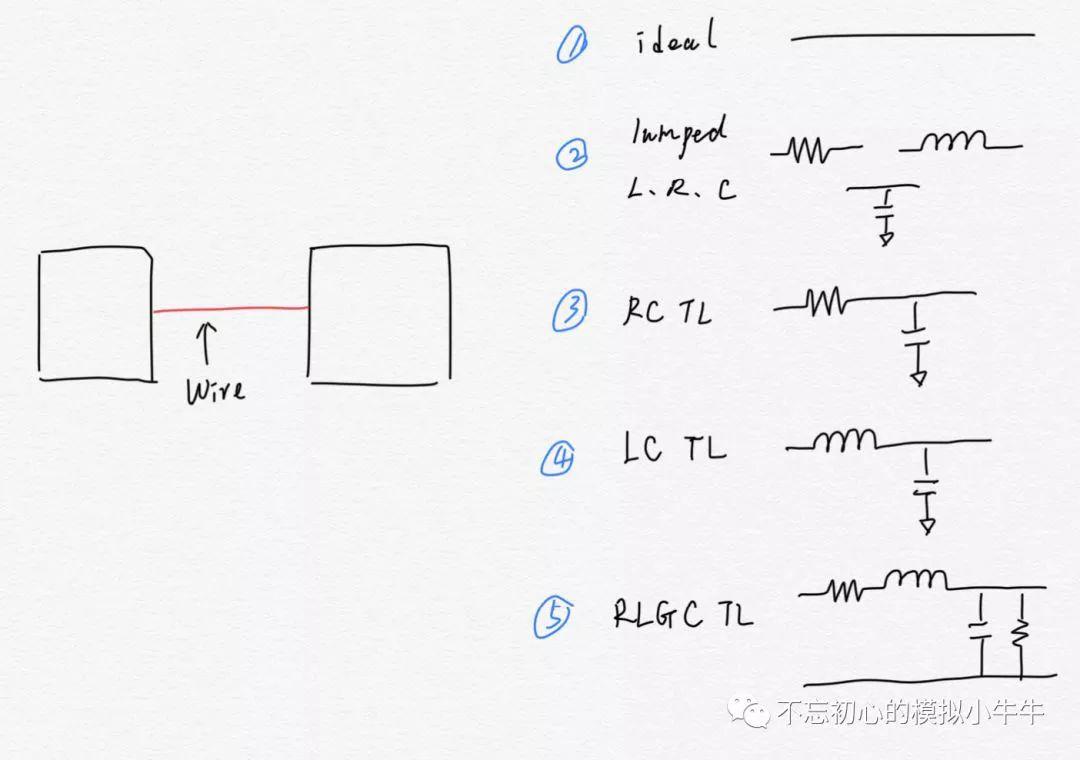 ① ideal
② lumped
L、R、C
③ RC TL
Wire
④ LC TL
⑤ RLGC TL
不忘初心的模拟小牛牛